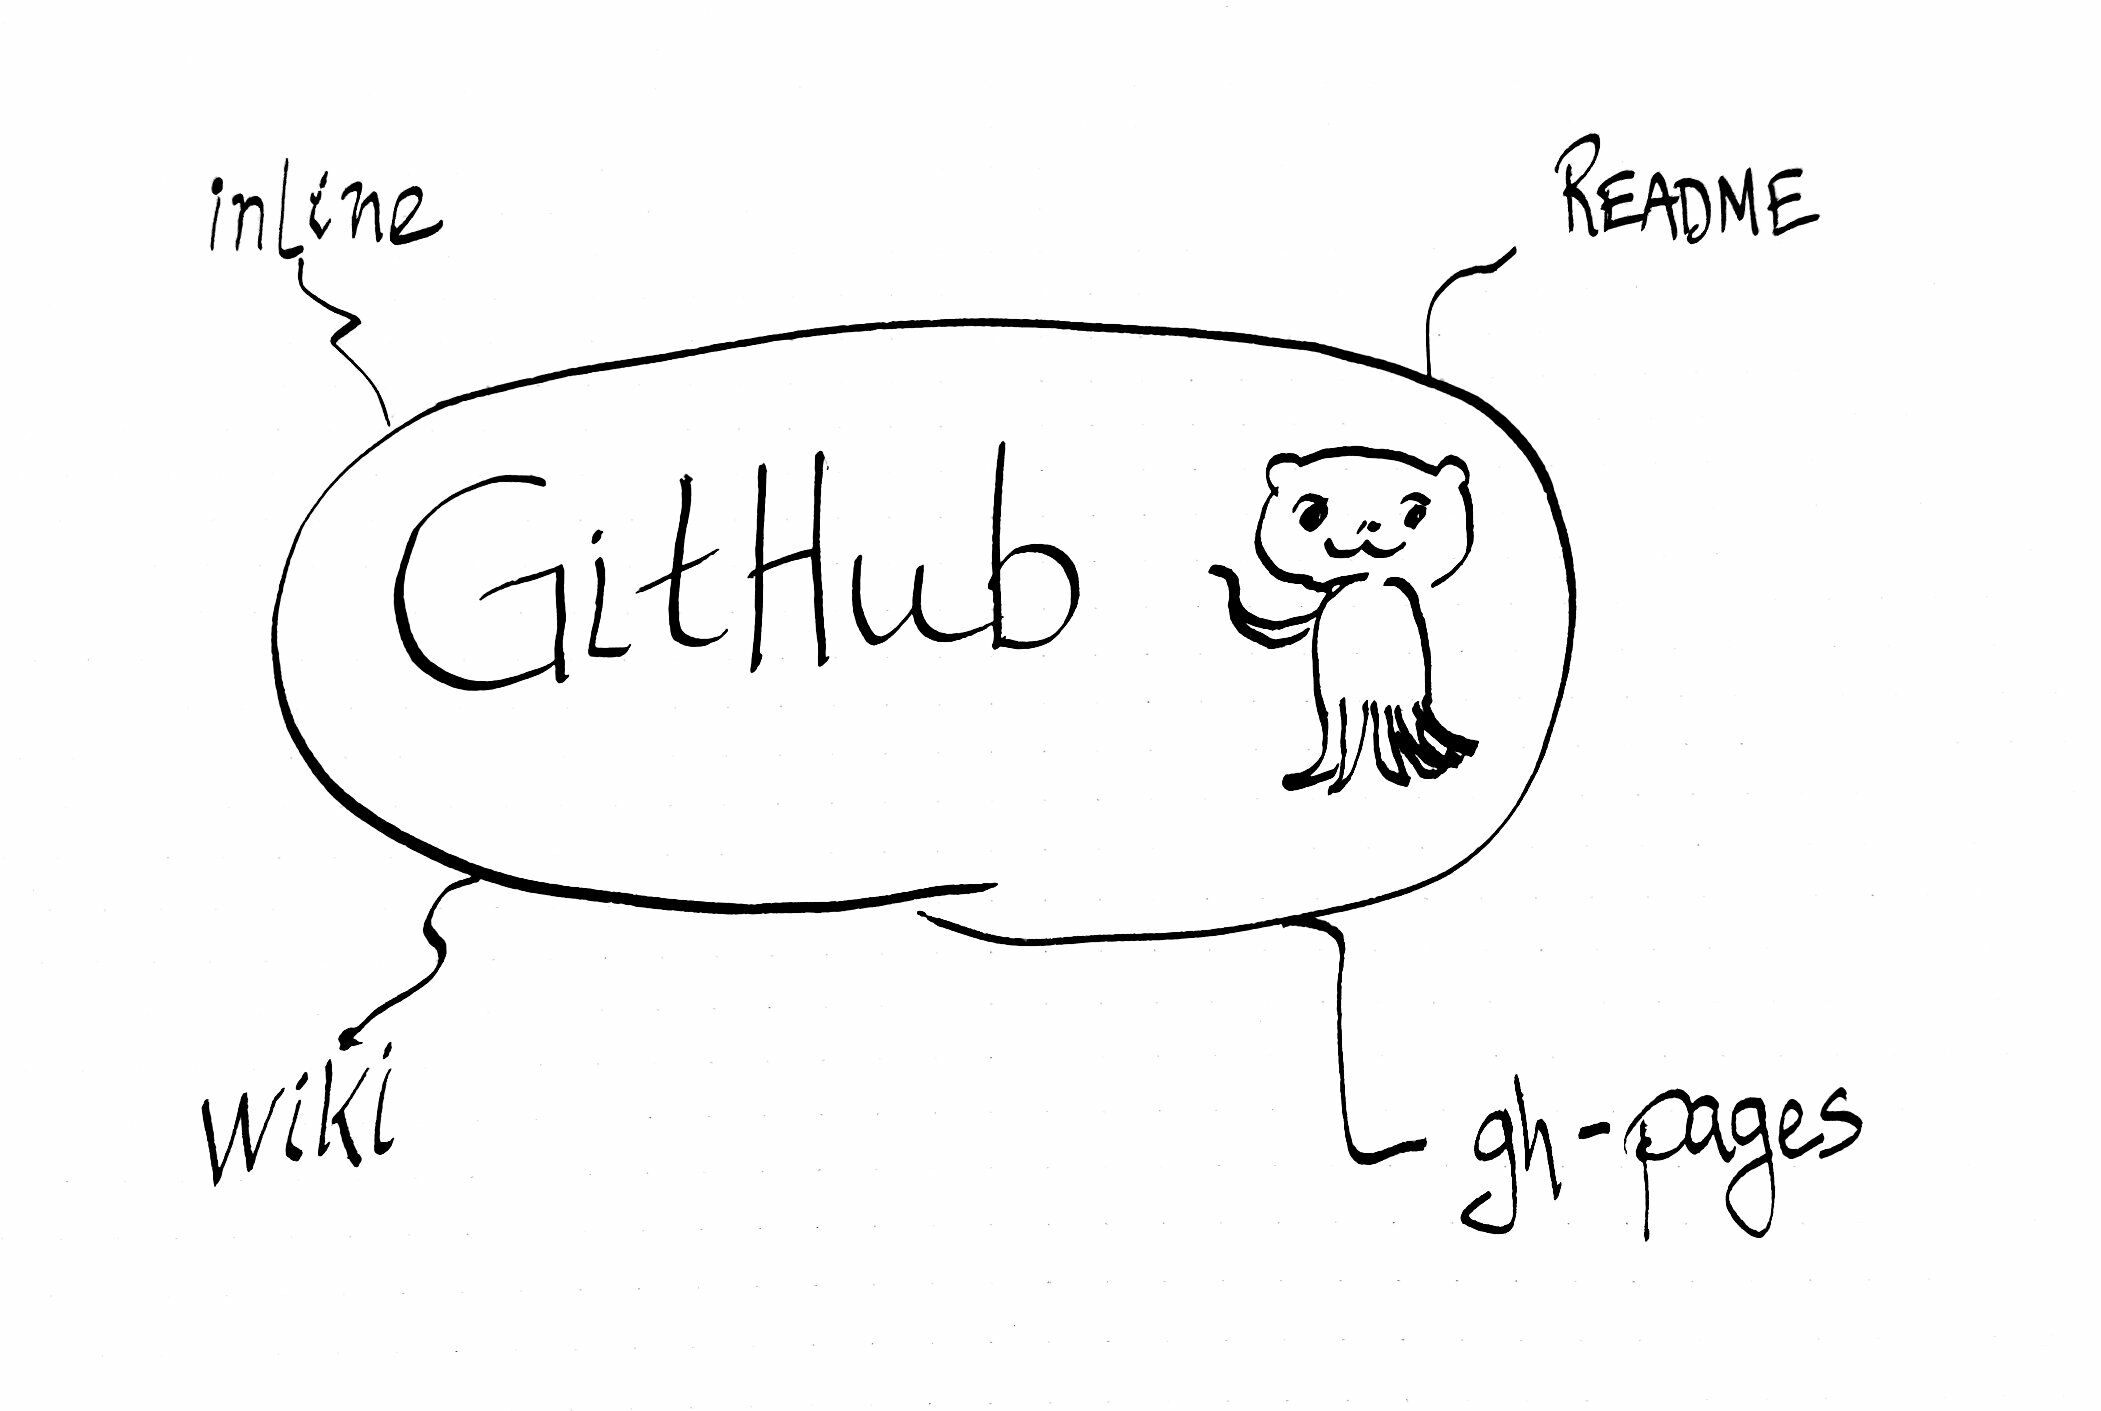 inline
README
GitHub
wiki
gh-pages